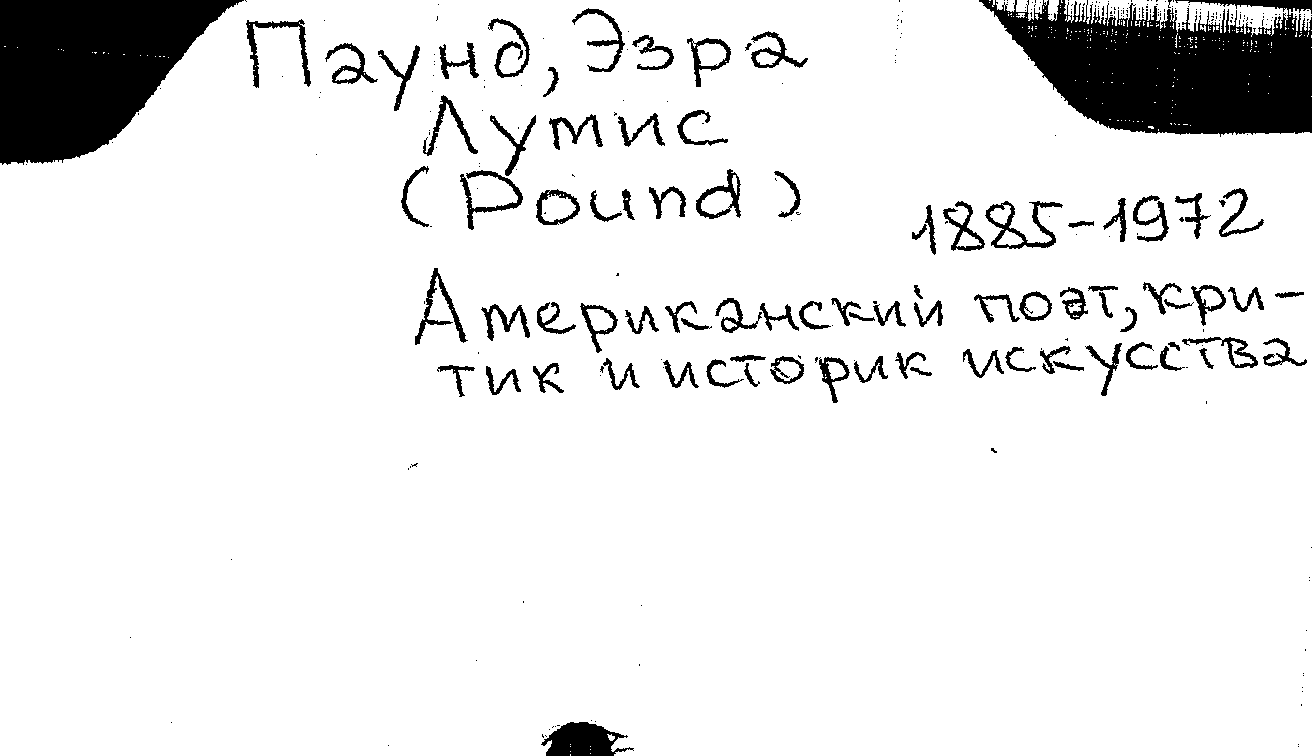 Паунд, Эзра
Лумис
(Pound)
1885-1972
Американский поэт, кри-
тик и историк искусства